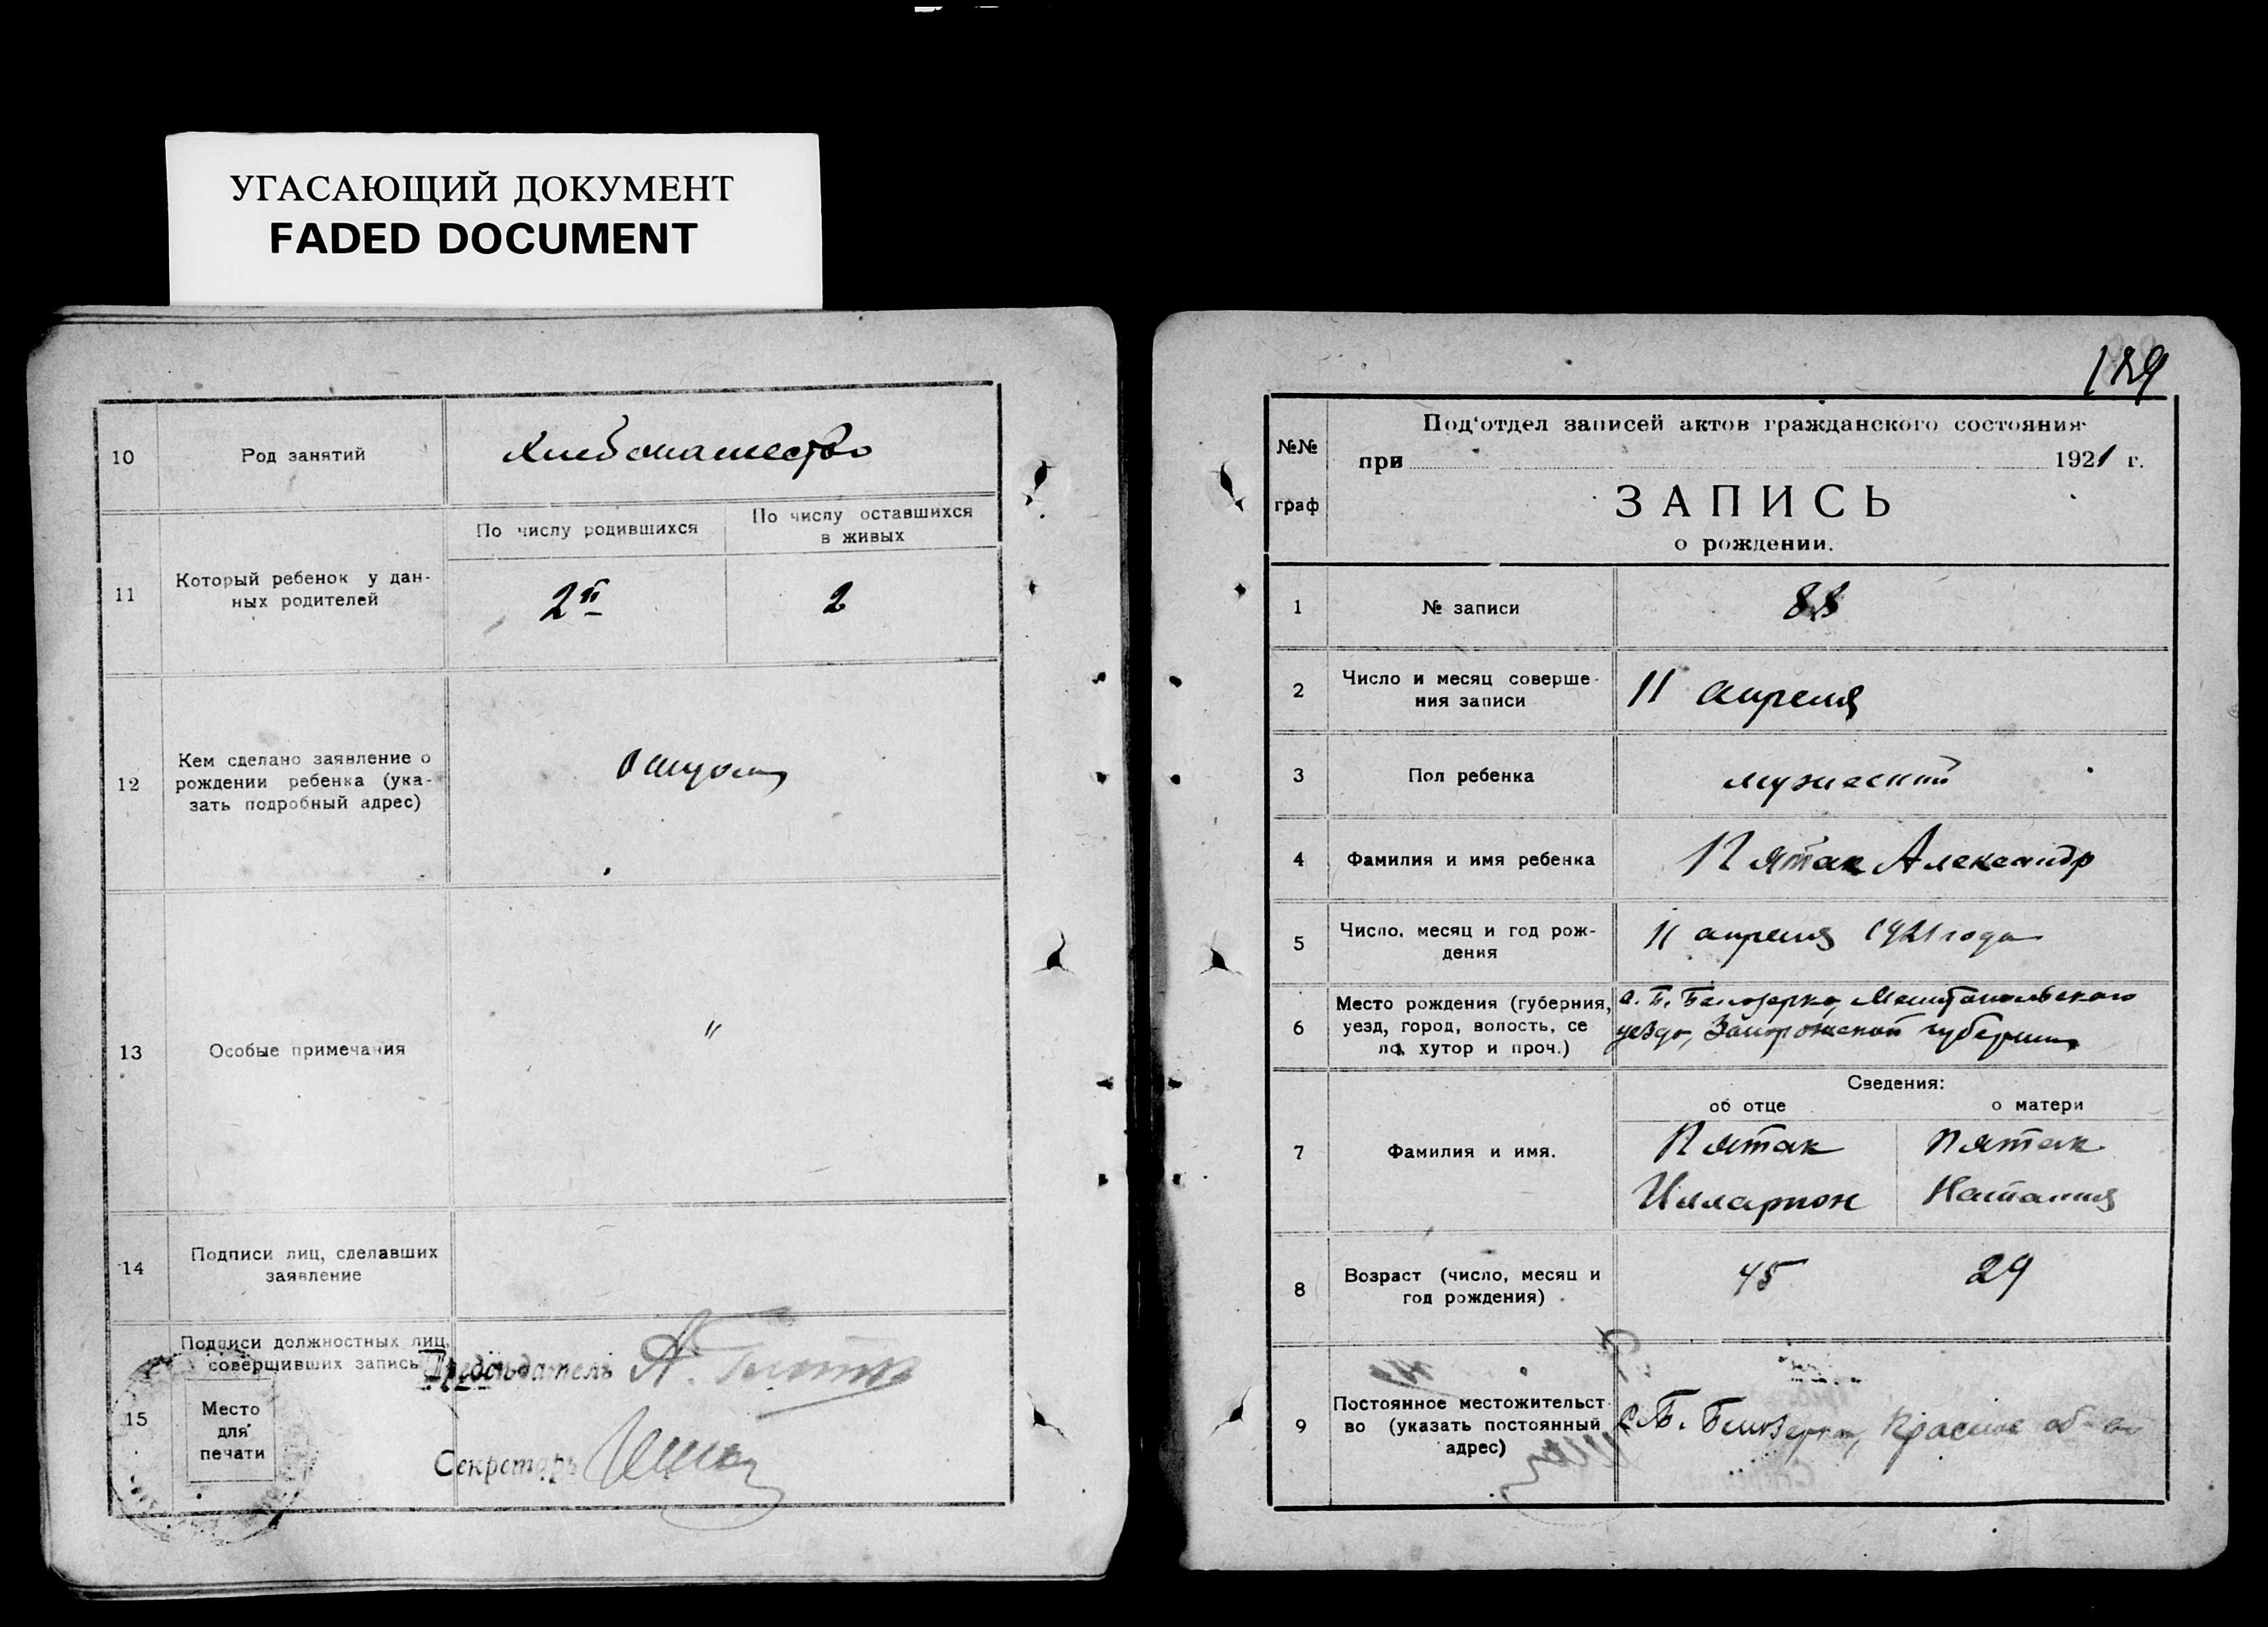 УГАСАЮЩИЙ ДОКУМЕНТ
FADED DOCUMENT
10
Род занятий
Хлебопашество
11
Который ребенок у дан-
ных родителей
По числу родившихся
По числу оставшихся
в живых
2й
2
12
Кем сделано заявление о
рождении ребенка (ука-
зать подробный адрес)
13
Особые примечания
"
14
Подписи лиц, сделавших
заявление
15
Подписи должностных лиц,
совершивших запись
Председатель А.
Место
для
печати
Секретарь
129
№№
граф
Под'отдел записей актов гражданского состояния
при 1921 г.
ЗАПИСЬ
о рождении.
1
№ записи
88
2
Число и месяц соверше-
ния записи
11 апреля
3
Пол ребенка
мужеский
4
Фамилия и имя ребенка
Пятак Александр
5
Число, месяц и год рож-
дения
11 апреля 1921 года
6
Место рождения (губерния,
уезд, город, волость, се
ло, хутор и проч.)
с. Б. Белозерка, Мелитопольского
уезда, Запорожской губернии
Сведения:
об отце
о матери
7
Фамилия и имя.
Пятак
Илларион
Пятак
Наталия
8
Возраст (число, месяц и
год рождения)
45
29
9
Постоянное местожительст-
во (указать постоянный
адрес)
с. Б. Белозерка,